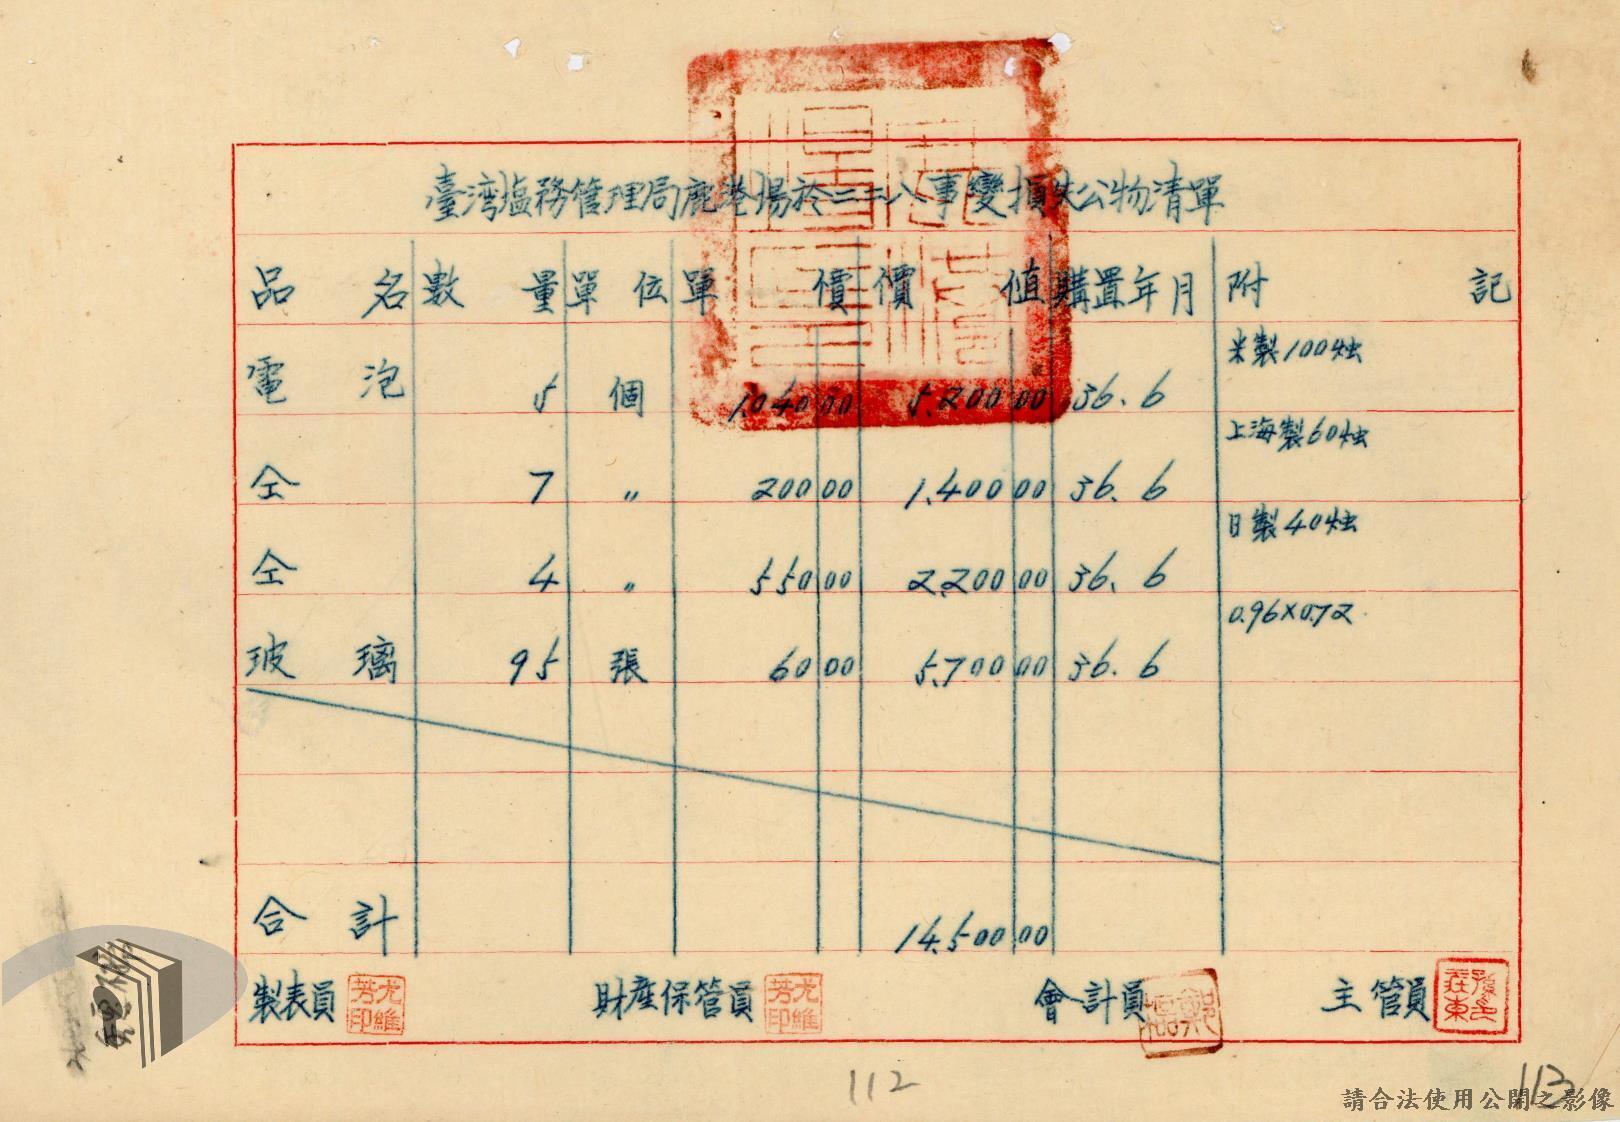 臺湾塩務管理局鹿港場於二二八事變損失公物清單
品名 數量 單位 單價 價值 購置年月 附記
電泡 5 個 1,040 00 5,200 00 36.6 米製100烛
仝 7 〃 200 00 1,400 00 36.6 上海製60烛
仝 4 〃 550 00 2,200 00 36.6 日製40烛
玻璃 95 張 60 00 5,700 00 36.6 0.96×0.72
合計 14,500 00
製表員 尤維芳印 財產保管員 尤維芳印 會計員 主管員
112
113
請合法使用公開之影像